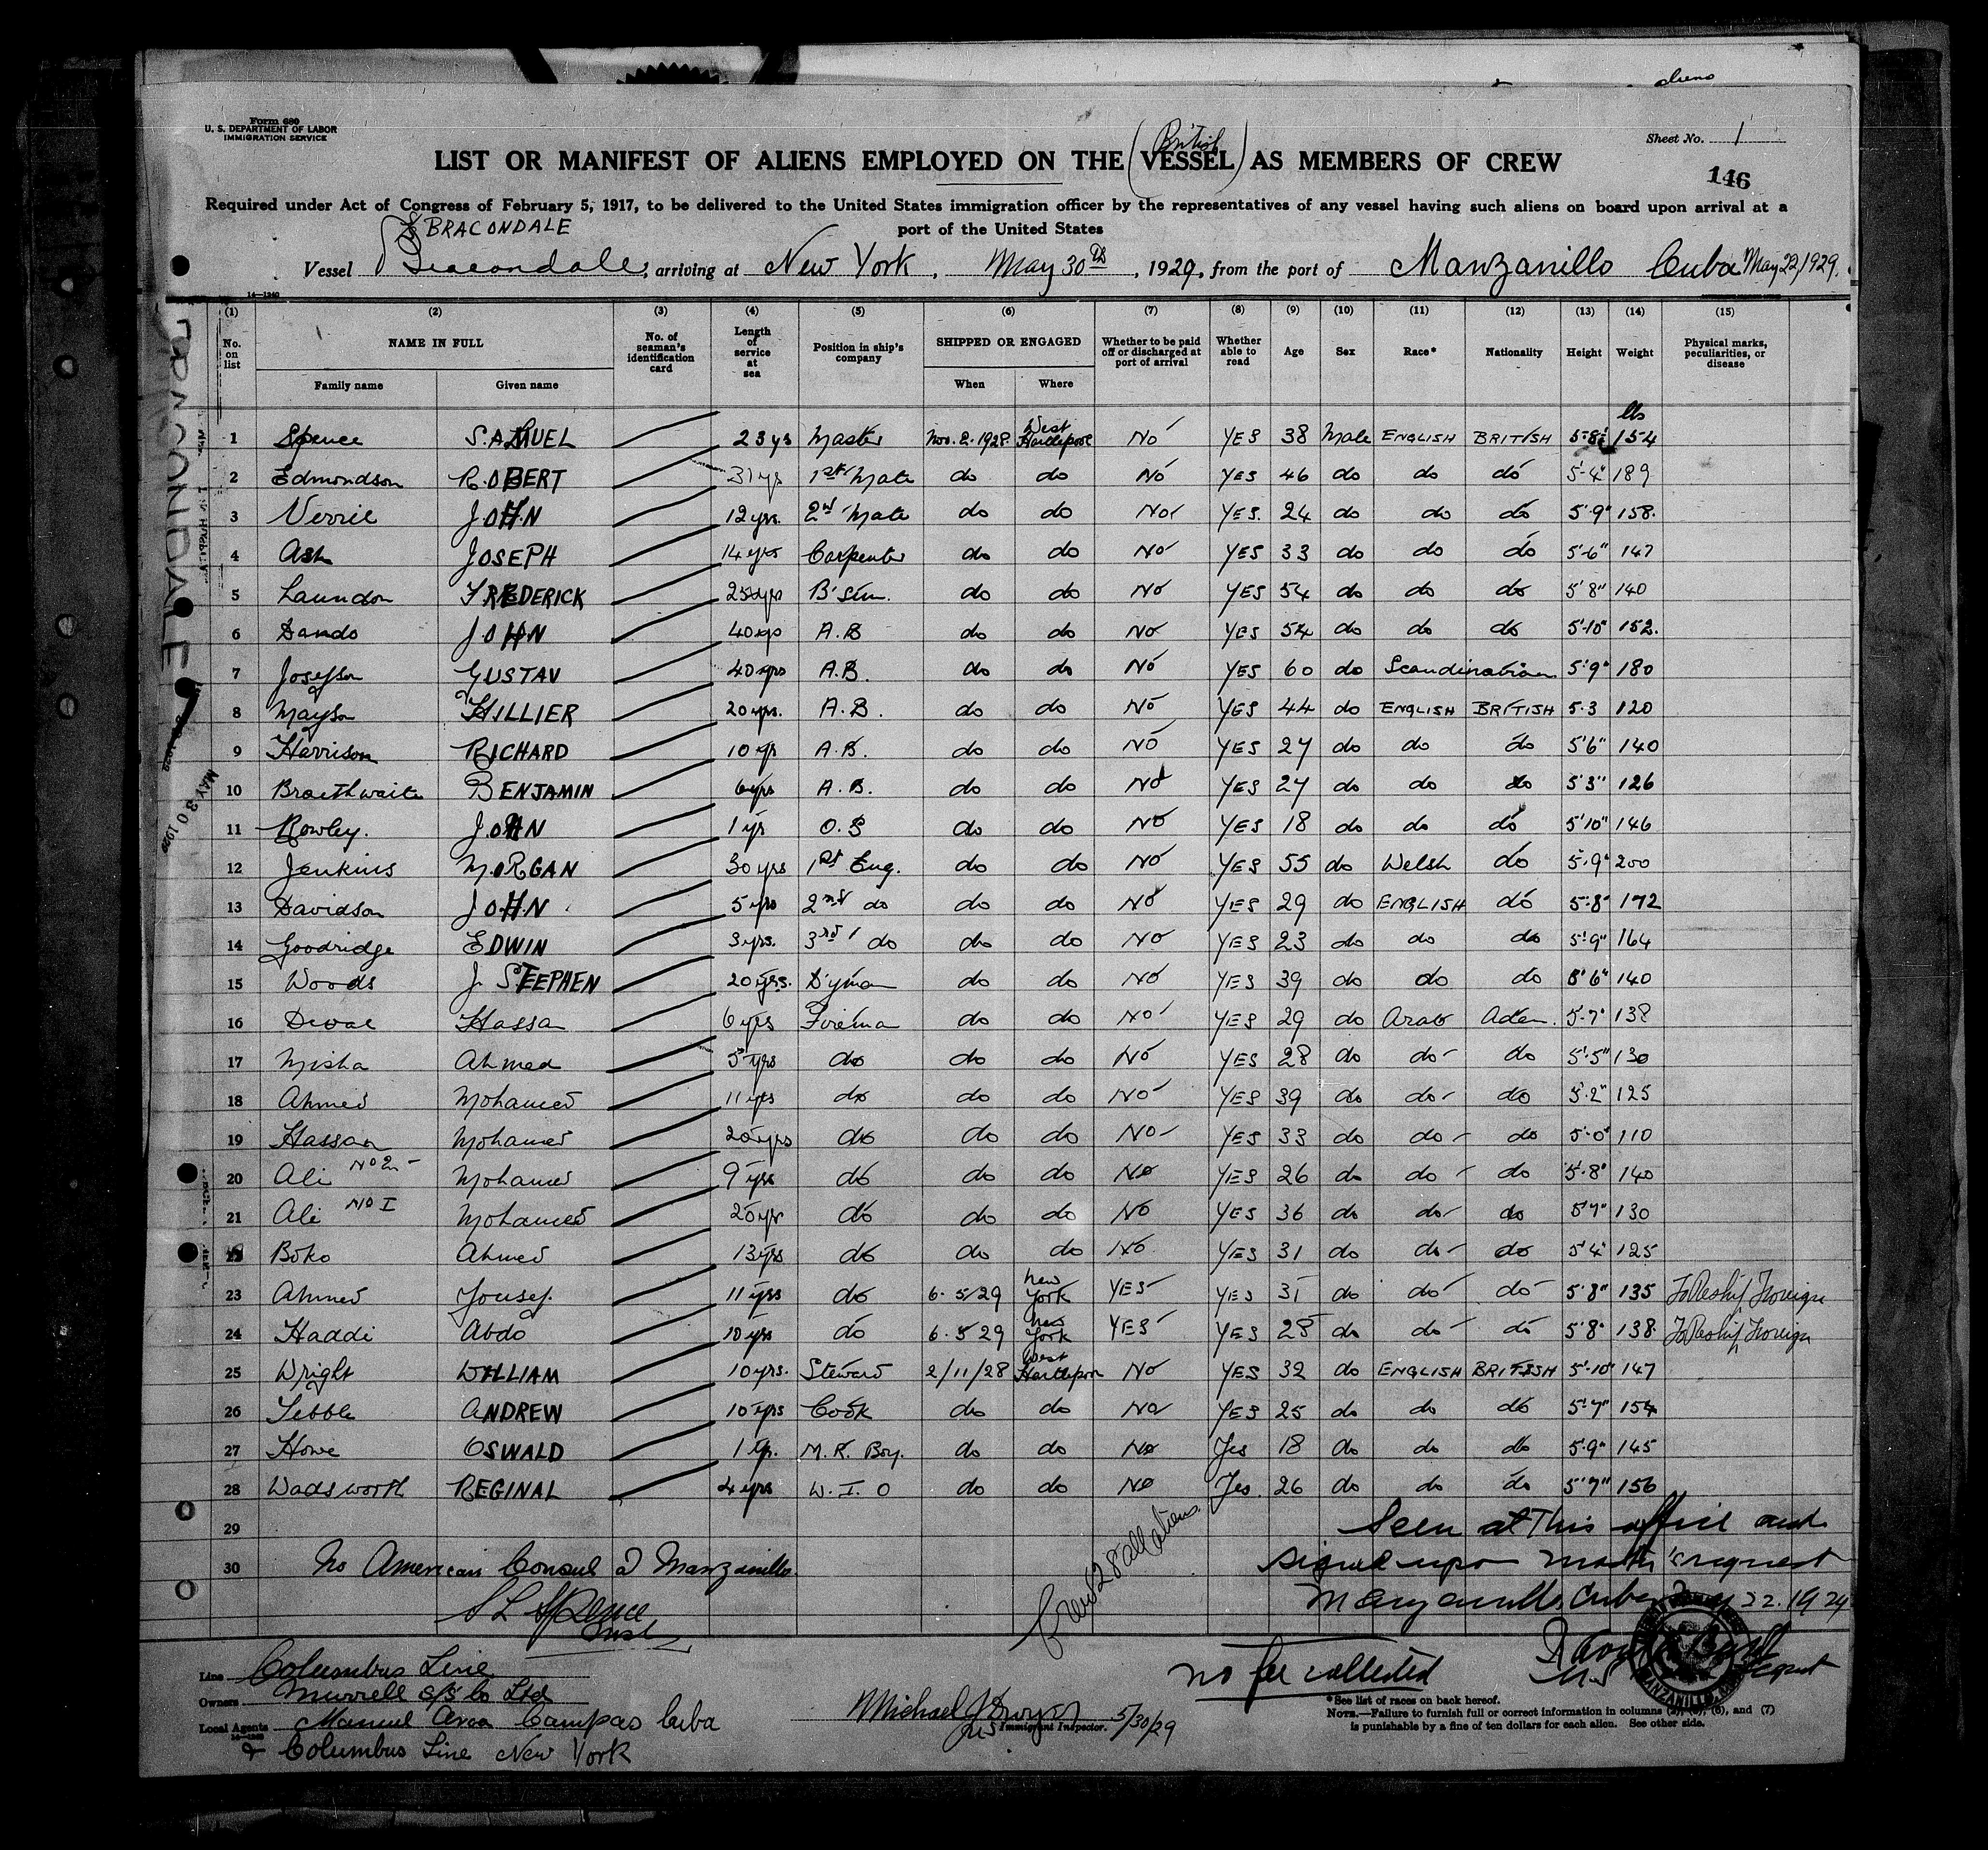 aliens
Form 680
U. S. DEPARTMENT OF LABOR
IMMIGRATION SERVICE
Sheet No. 1
British
LIST OR MANIFEST OF ALIENS EMPLOYED ON THE (VESSEL) AS MEMBERS OF CREW
146
Required under Act of Congress of February 5, 1917, to be delivered to the United States immigration officer by the representatives of any vessel having such aliens on board upon arrival at a
port of the United States
BRACONDALE
Vessel Bracondale, arriving at New York, May 30th, 1929, from the port of Manzanillo Cuba May 22, 1929.
14-1240
(1) (2) (3) (4) (5) (6) (7) (8) (9) (10) (11) (12) (13) (14) (15)
No. on list NAME IN FULL No. of seaman's identification card Length of service at sea Position in ship's company SHIPPED OR ENGAGED Whether to be paid off or discharged at port of arrival Whether able to read Age Sex Race* Nationality Height Weight Physical marks, peculiarities, or disease
Family name Given name When Where
lbs
1 Spence SAMUEL 23 yrs Master Nov. 2. 1928 West Hartlepool No YES 38 Male ENGLISH BRITISH 5-8 154
2 Edmondson ROBERT 31 yrs 1st Mate do do No YES 46 do do do 5'-4" 189
3 Verrill JOHN 12 yrs. 2nd Mate do do No YES. 24 do do do 5'9" 158.
4 Ash JOSEPH 14 yrs Carpenter do do No YES 33 do do do 5'6" 147
5 Laundon FREDERICK 25 yrs B'sun. do do No YES 54 do do do 5'8" 140
6 Dando JOHN 40 yrs A.B do do No YES 54 do do do 5'-10" 152.
7 Josefson GUSTAV 40 yrs A.B. do do No YES 60 do Scandinavian 5'9" 180
8 Mayson HILLIER 20 yrs. A.B. do do No YES 44 do ENGLISH BRITISH 5.3 120
9 Harrison RICHARD 10 yr A.B. do do NO YES 27 do do do 5'6" 140
10 Braithwaite BENJAMIN 6 yrs A.B. do do No YES 27 do do do 5'3" 126
11 Rowley. JOHN 1 yr O.S do do No YES 18 do do do 5'10" 146
12 Jenkins MORGAN 30 yrs 1st Eng. do do No YES 55 do Welsh do 5'.9" 200
13 Davidson JOHN 5 yrs 2nd do do do No YES 29 do ENGLISH do 5'8" 172
14 Goodridge EDWIN 3 yrs. 3rd do do do No YES 23 do do do 5'9" 164
15 Woods J. STEEPHEN 20 yrs. D'yman do do No YES 39 do do do 5'6" 140
16 Dwae Hassa 6 yrs Firema do do No YES 29 do Arab Aden. 5-7" 138
17 Misha Ahmed 5 yrs do do do No YES 28 do do do 5'.5" 130
18 Ahmed Mohamed 11 yrs do do do No YES 39 do do do 5.2" 125
19 Hassan Mohamed 20 yrs do do do No YES 33 do do do 5'-0" 110
20 Ali No 2 Mohamed 9 yrs do do do No YES 26 do do do 5'.8" 140
21 Ali No I Mohamed 20 yr do do do No YES 36 do do do 5'7" 130
22 Boko Ahmed 13 yrs do do do No. YES 31 do do do 5'4" 125
23 Ahmed Yousef. 11 yrs do 6.5/29 New York YES YES 31 do do do 5'8" 135 To Reship Foreign
24 Haddi Abdo 10 yrs do 6.5 29 New York YES YES 28 do do do 5'8" 138 To Reship Foreign
25 Wright WILLIAM 10 yrs. Steward 2/11/28 West Hartlepool No YES 32 do ENGLISH BRITISH 5'-10" 147
26 Tebble ANDREW 10 yrs Cook do do No YES 25 do do do 5'-7" 154
27 Howe OSWALD 1 yr. M.R. Boy. do do No Yes 18 do do do 5.9" 145
28 Wadsworth REGINAL 4 yrs W.I.O do do No Yes. 26 do do do 5'7" 156
29
30 No American Consul at Manzanillo.
Seen at This office and
signed upon master's request
Manzanillo, Cuba, May 22. 1929
Crew 28 all aliens.
S L Spence
Mast
Line Columbus Line
Owners Murrell S/S Co Ltd
Local Agents Manuel Arca Campas Cuba
& Columbus Line New York
14-1240
Michael J Dwyer
Immigrant Inspector. 5/30/29
no fee collected
*See list of races on back hereof.
NOTE.—Failure to furnish full or correct information in columns (2), (5), (6), and (7)
is punishable by a fine of ten dollars for each alien. See other side.
BRACONDALE
MAY 30 1929